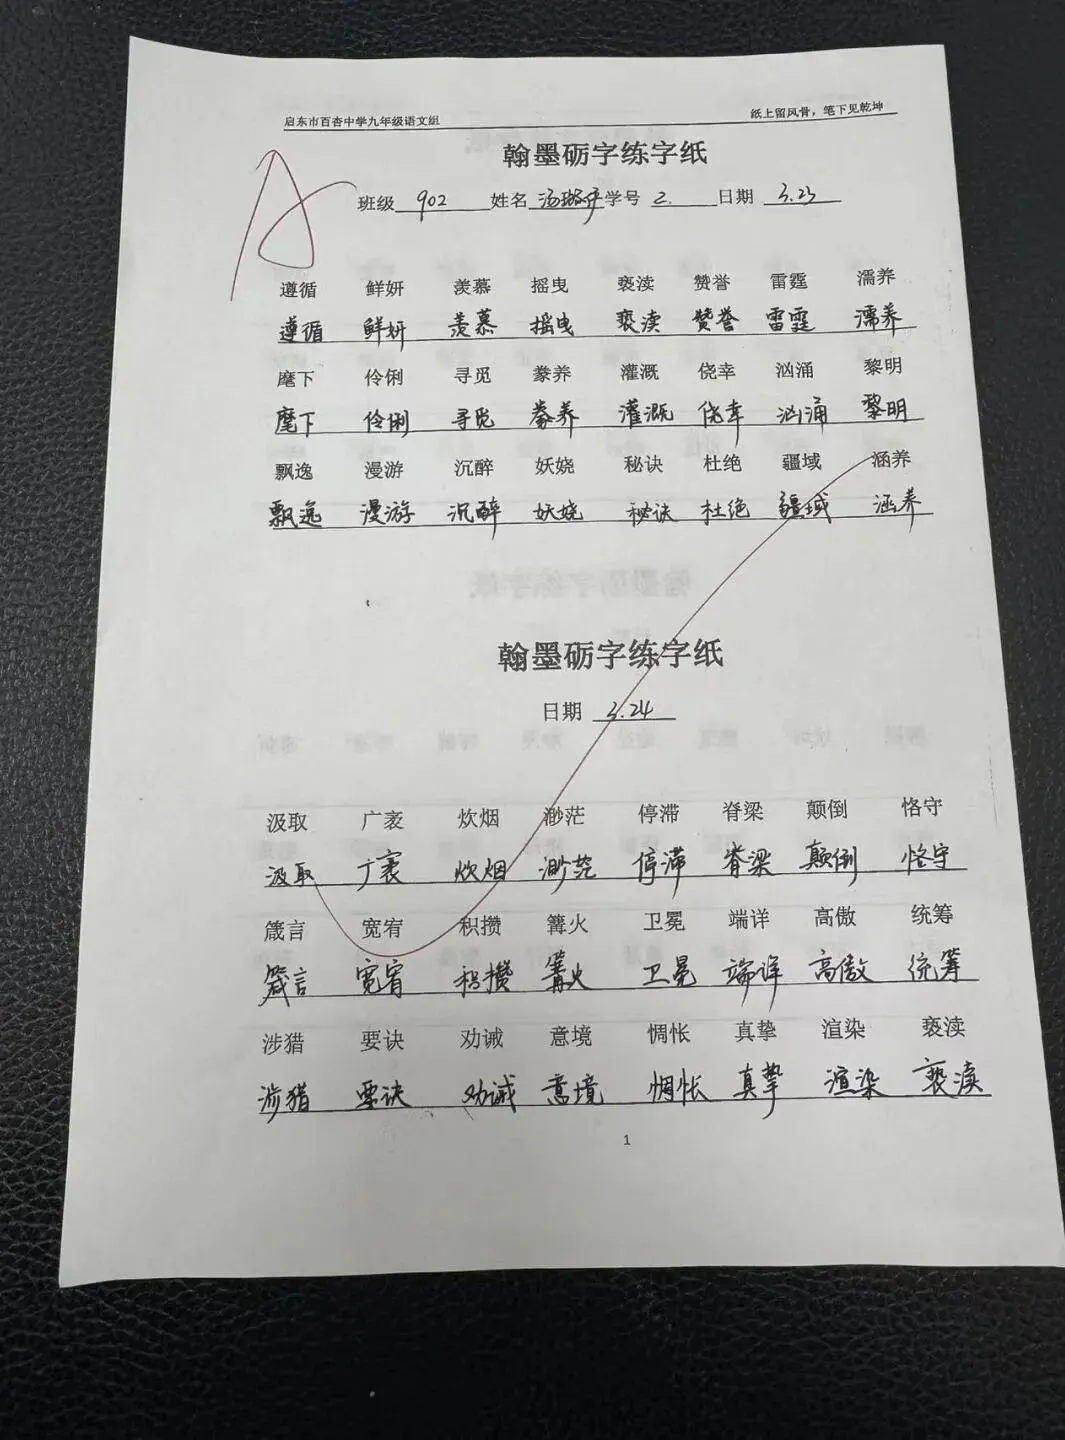 启东市百杏中学九年级语文组 纸上留风骨，笔下见乾坤
翰墨砺字练字纸
A
班级 902 姓名 汤 学号 2. 日期 3.23
遵循 鲜妍 羡慕 摇曳 亵渎 赞誉 雷霆 濡养
遵循 鲜妍 羡慕 摇曳 亵渎 赞誉 雷霆 濡养
麾下 伶俐 寻觅 豢养 灌溉 侥幸 汹涌 黎明
麾下 伶俐 寻觅 豢养 灌溉 侥幸 汹涌 黎明
飘逸 漫游 沉醉 妖娆 秘诀 杜绝 疆域 涵养
飘逸 漫游 沉醉 妖娆 秘诀 杜绝 疆域 涵养
翰墨砺字练字纸
日期 3.24
汲取 广袤 炊烟 渺茫 停滞 脊梁 颠倒 恪守
汲取 广袤 炊烟 渺茫 停滞 脊梁 颠倒 恪守
箴言 宽宥 积攒 篝火 卫冕 端详 高傲 统筹
箴言 宽宥 积攒 篝火 卫冕 端详 高傲 统筹
涉猎 要诀 劝诫 意境 惆怅 真挚 渲染 亵渎
涉猎 要诀 劝诫 意境 惆怅 真挚 渲染 亵渎
1